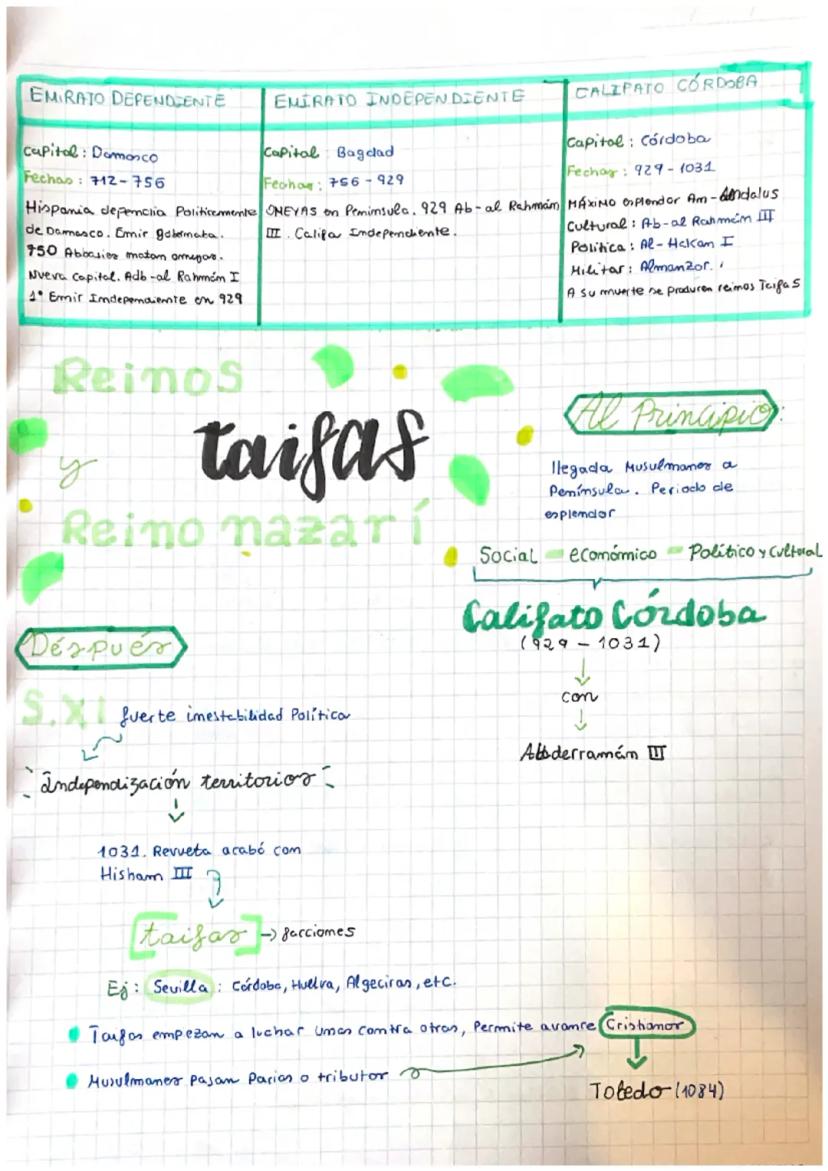 EMIRATO DEPENDIENTE
Capital: Damasco
Fechas: 712-756
Hispania dependia Politicamente
de Damasco. Emir gobernata.
750 Abbasies matan omeyas.
Nueva Capital. Adb-al Rahmán I
1º Emir Independiente en 929
EMIRATO INDEPENDIENTE
Capital: Bagdad
Fechas: 756-929
OMEYAS en Península. 929 Ab-al Rahmám
III. Califa Independiente.
CALIFATO CÓRDOBA
Capital: Córdoba
Fechas: 929-1031
MÁXIMO esplendor Am-Andalus
Cultural: Ab-al Rahmám III
Politica: Al-Hakam I
Militar: Almanzor.
A su muerte se producen reinos Taifas
Reinos
taifas
y
Reino nazarí
Al Principio:
llegada Musulmanes a
Península. Periodo de
esplendor
Social - económico - Político y Cultural
Califato Córdoba
(929-1031)
con
Abderramán III
Después
S.XI fuerte inestabilidad Política
Independización territorios
1031. Revueta acabó con
Hisham III
[taifas] → facciones
Ej: Sevilla: Córdoba, Huelva, Algeciras, etc.
Taifas empezan a luchar unas contra otras, Permite avance Cristianos
Musulmanes pajan Parias o tributos
Toledo (1084)